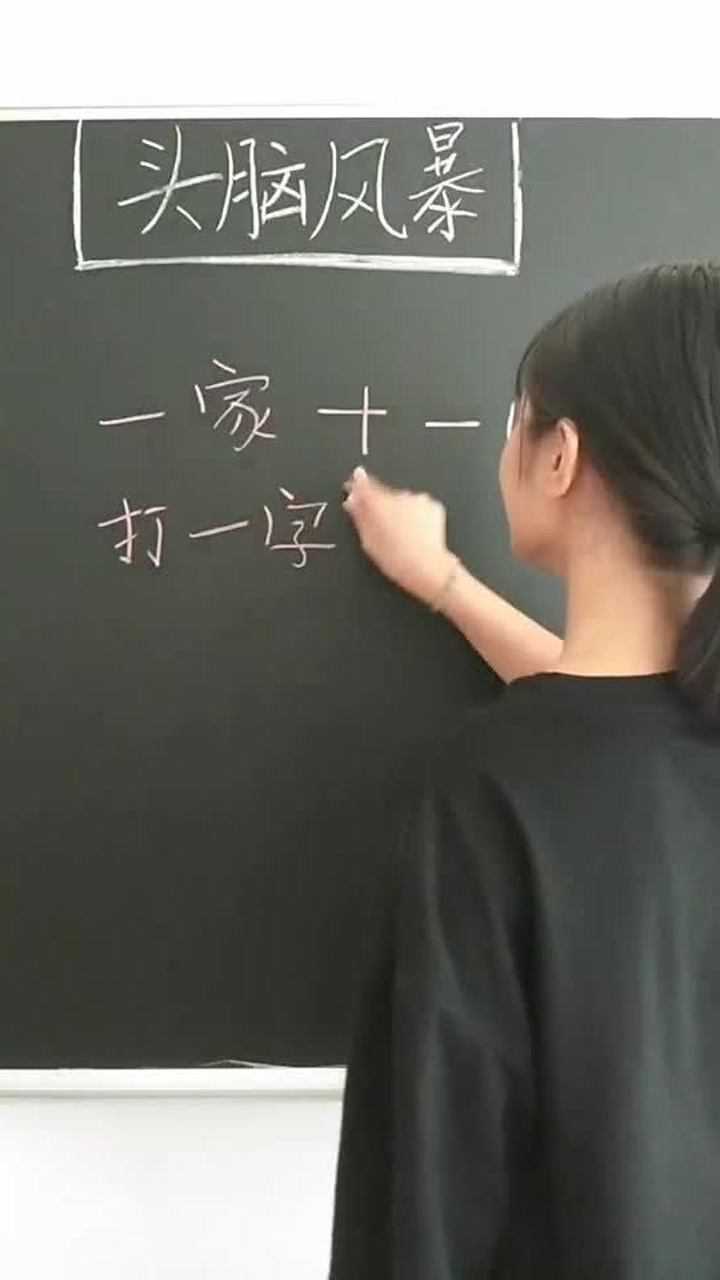 头脑风暴
一家十一
打一字